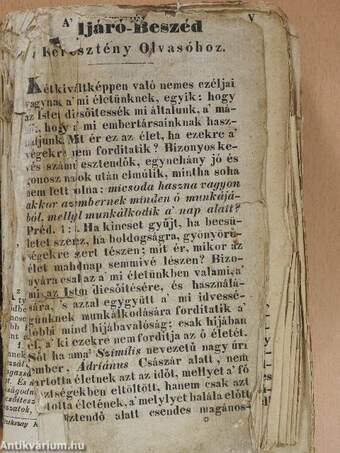 A'
V
ljáró-Beszéd
Keresztény Olvasóhoz.
Kétkiváltképpen való nemes czéljai
vagynak a' mi életünknek, egyik: hogy
az Isten dicsőitessék mi általunk, a' má-
hogy a' mi embertársainknak hasz-
náljunk. Mit ér ez az élet, ha ezekre a'
végekre nem fordítatik? Bizonyos ke-
vés számu esztendők, egynehány jó és
gonosz napok után elmúlik, mintha soha
nem lett volna: micsoda haszna vagyon
akkor azembernek minden ő munkájá-
ból, mellyl munkálkodik a' nap alatt?
Préd. 1: Ha kincset gyűjt, ha becsü-
letet szerez, ha boldogságra, gyönyörü-
ségekre szert tészen; mit ér, mikor az
élet mahólnap semmivé lészen? Bizo-
nyára csal az a' mi életünkben valami, a'
mi az Isten dicsőitésére, és használá-
sára, 's azzal egygyütt a' mi idvessé-
günknek munkálkodására fordítatik a'
többi mind hijábavalóság; csak hijában
él, a' ki ezekre nem fordítja az ő életét.
Sőt ha ama' Szimilis nevezetű nagy úri
ember, Adriánus Császár alatt, nem
tartotta életnek azt az időt, mellyet a' fő
tisztségekben eltöltött, hanem csak azt
tartotta életének, a' melylyet halála előtt
esztendő alatt csendes magános-
Antikvárium.hu